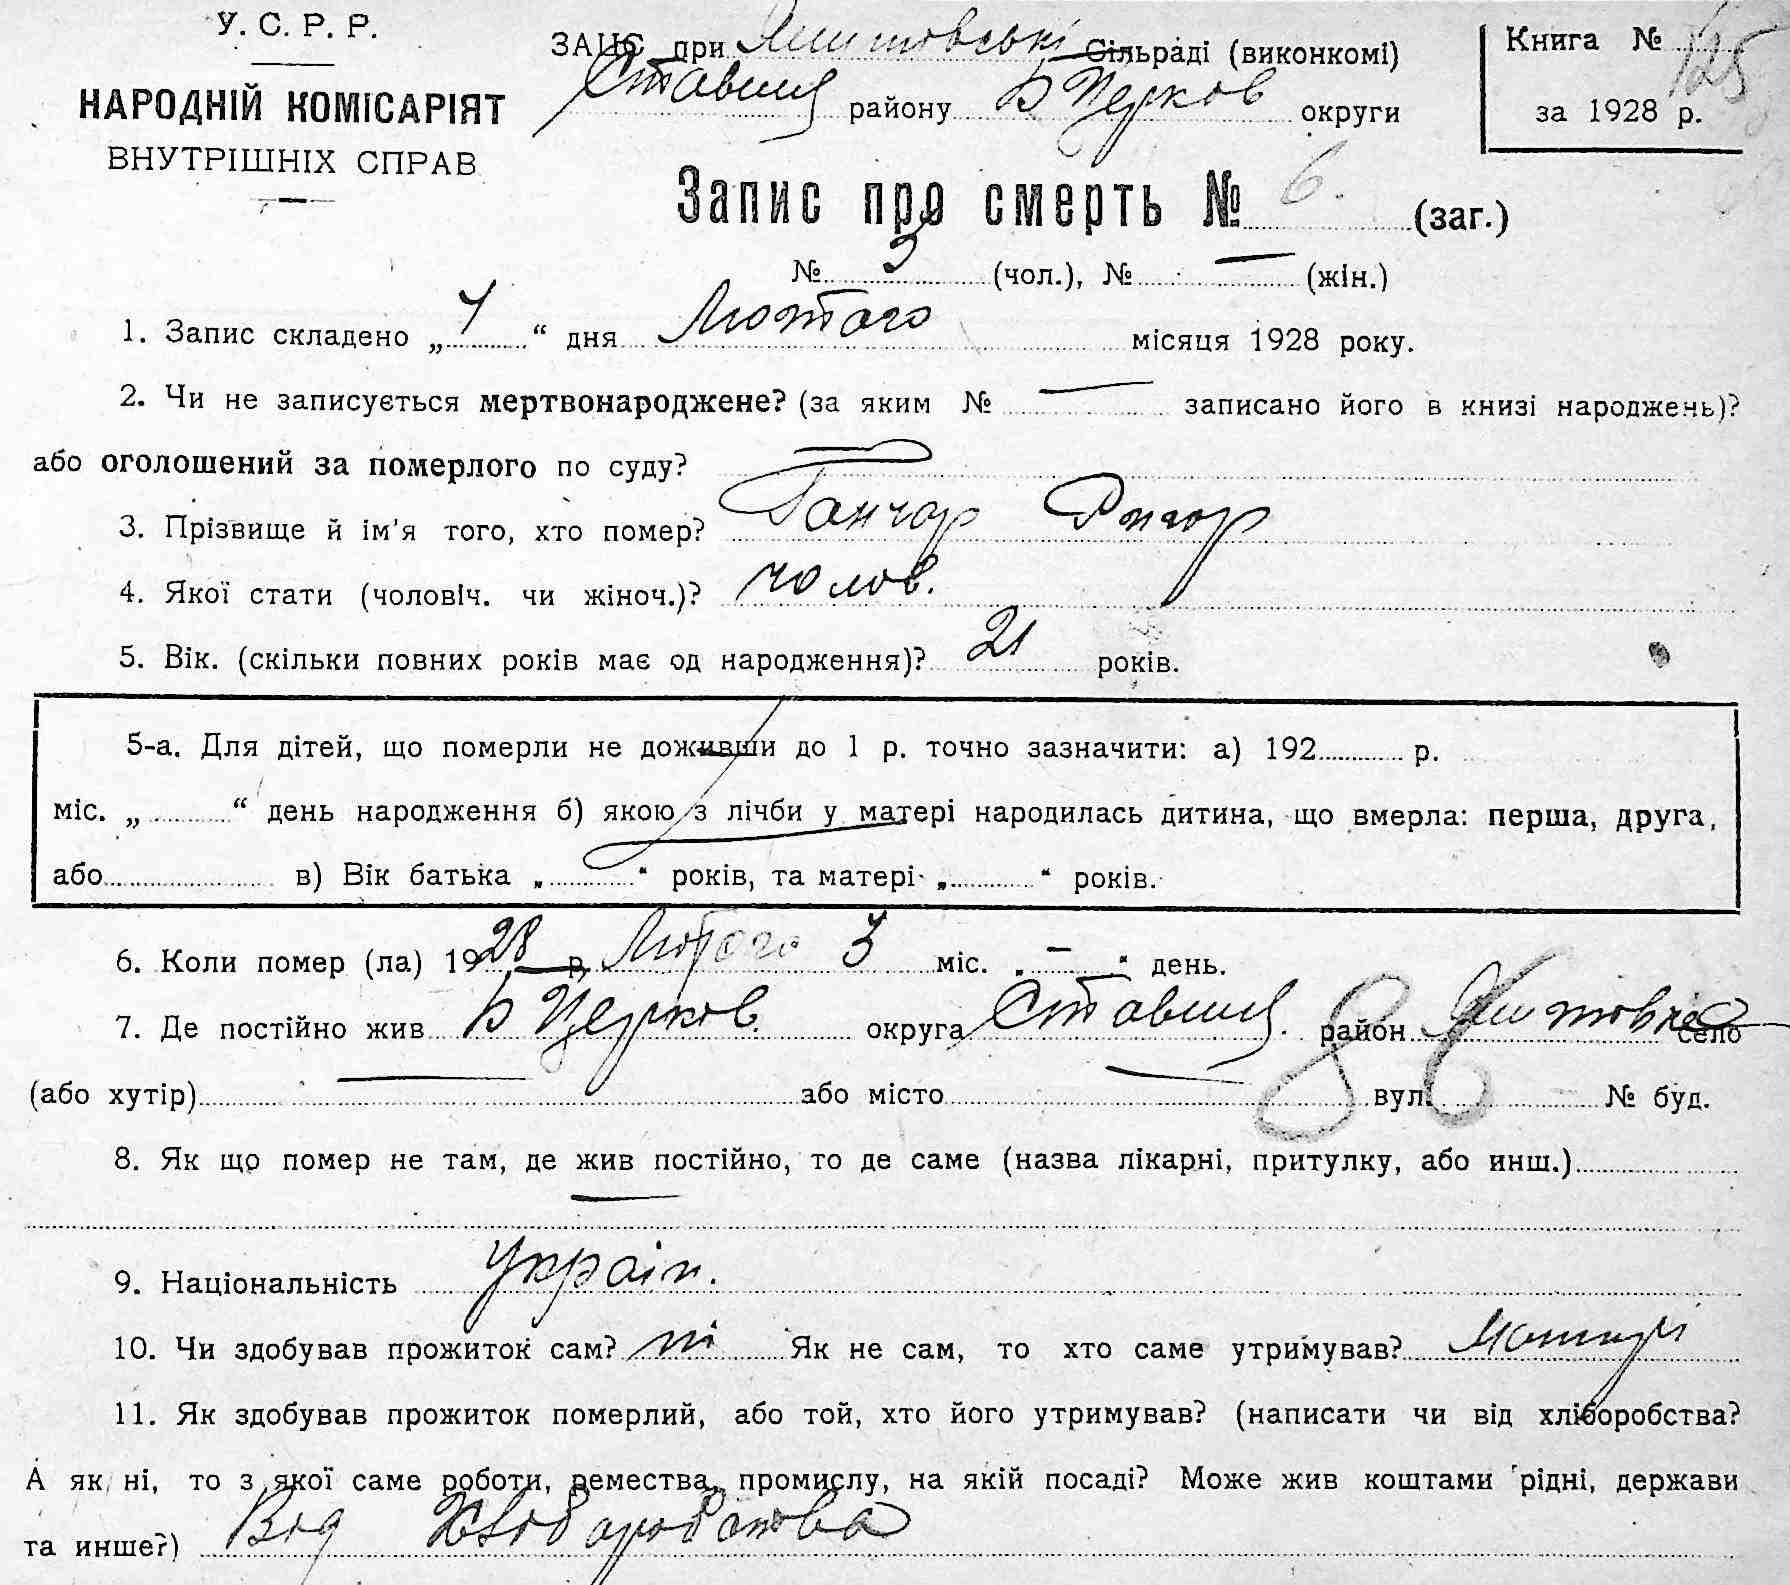 У. С. Р. Р.
НАРОДНІЙ КОМІСАРІЯТ
ВНУТРІШНІХ СПРАВ
ЗАЦС при Сільраді (виконкомі)
Ставищ району Б Церков округи
Книга № 125
за 1928 р.
Запис про смерть № 6. (заг.)
№ 3 (чол.), № — (жін.)
1. Запис складено „ “ дня Лютого місяця 1928 року.
2. Чи не записується мертвонароджене? (за яким № — записано його в книзі народжень)?
або оголошений за померлого по суду?
3. Прізвище й ім'я того, хто помер? Гончар Григор
4. Якої стати (чоловіч. чи жіноч.)? чолов.
5. Вік. (скільки повних років має од народження)? 21 років.
5-а. Для дітей, що померли не доживши до 1 р. точно зазначити: а) 192 р.
міс. „ “ день народження б) якою з лічби у матері народилась дитина, що вмерла: перша, друга,
або в) Вік батька „ “ років, та матері „ “ років.
6. Коли помер (ла) 1928 р. Лютого 3 міс. „ – “ день.
7. Де постійно жив Б Церков округа Ставищ. район село
86
(або хутір) — або місто — вул. № буд.
8. Як що помер не там, де жив постійно, то де саме (назва лікарні, притулку, або инш.)
—
9. Національність Україн.
10. Чи здобував прожиток сам? ні Як не сам, то хто саме утримував?
11. Як здобував прожиток померлий, або той, хто його утримував? (написати чи від хліборобства?
А як ні, то з якої саме роботи, ремества, промислу, на якій посаді? Може жив коштами рідні, держави
та инше?) Від Хліборобства